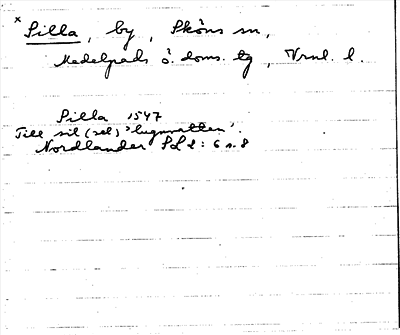 × Silla, by, Sköns sn,
Medelpads ö. doms. tg, Vrnl. l.
Silla 1547
Till sil (sel) 'lugnvatten'.
Nordlander SL 2: 6 n. 8